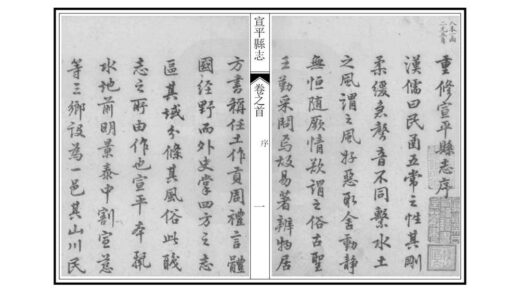 重修宣平縣志序
漢儒曰民函五常之性其剛
柔緩急聲音不同繫水土
之風謂之風好惡取舍動靜
無恒隨厥情欲謂之俗古聖
王勤采問焉故易著辨物居
宣平縣志 卷之首 序 一
方書稱任土作貢周禮言體
國經野而外史掌四方之志
區其域分條其風俗此職
志之所由作也宣平本麗
水地前明景泰中割宣慈
等三鄉設為一邑其山川民